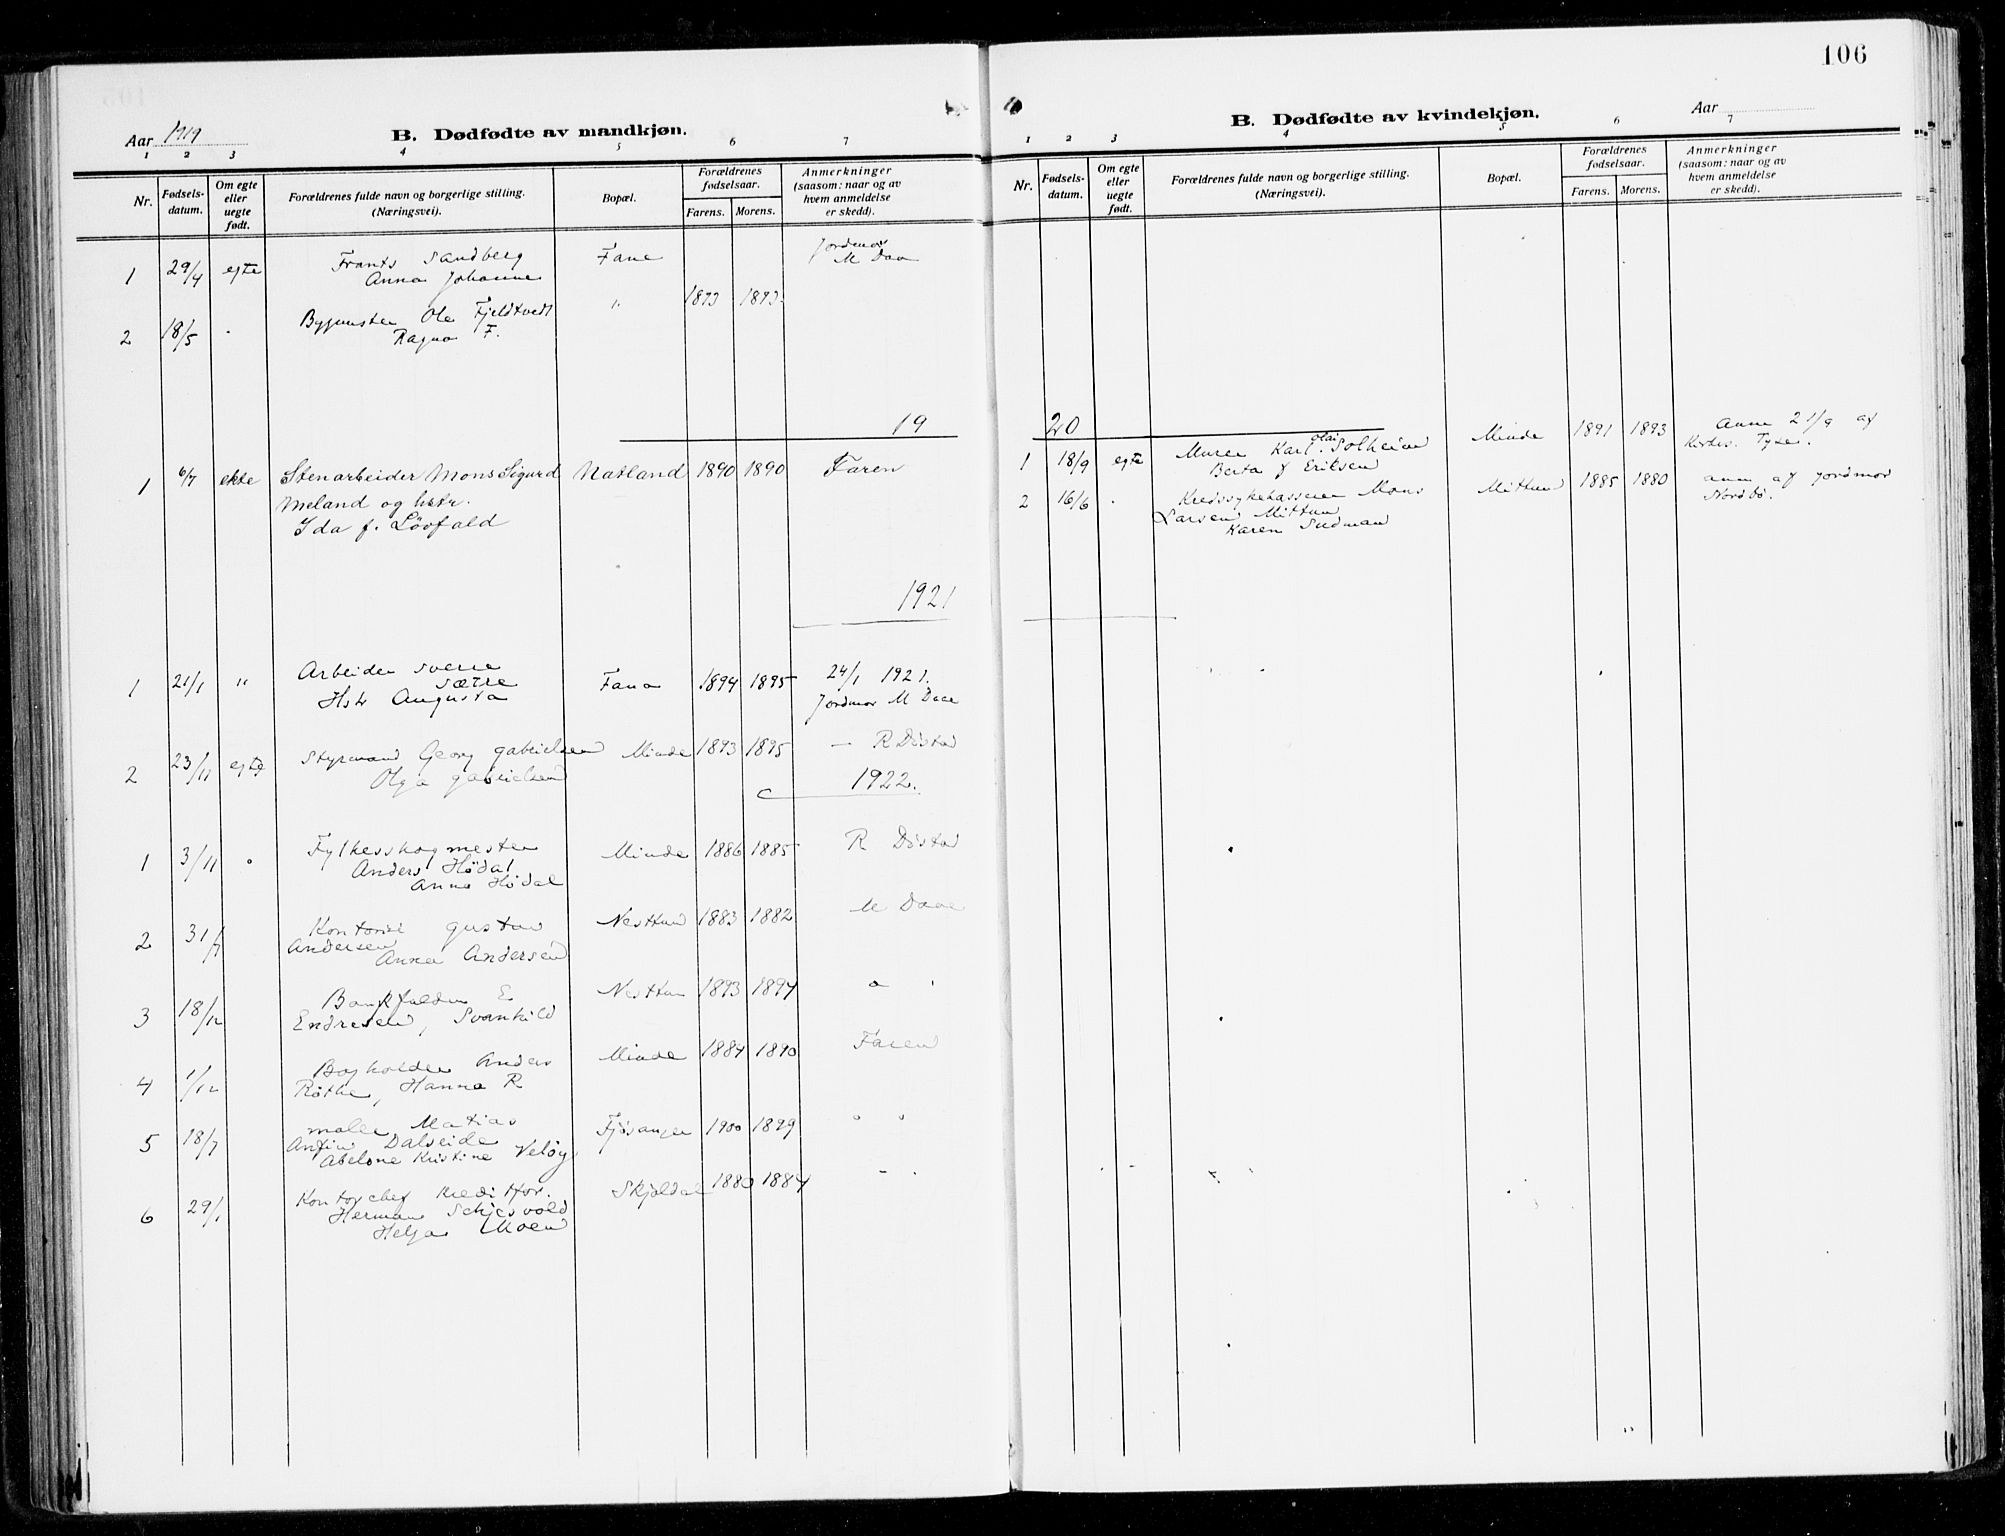 106
Aar 1919
B. Dødfødte av mandkjøn.
1 2 3 4 5 6 7
Nr.
Fødsels-
datum.
Om egte
eller
uegte
født.
Forældrenes fulde navn og borgerlige stilling.
(Næringsvei).
Bopæl.
Forældrenes
fødselsaar.
Farens. Morens.
Anmerkninger
(saasom: naar og av
hvem anmeldelse
er skedd).
1 29/4 egte Frants Sandberg Fane Jordmor
Anna Johanne M Daa
2 18/5 Ole Fjeldtvedt " 1893 1893
Ragna F.
19
1 6/7 ekte Stenarbeider Mons Sigurd Natland 1890 1890 Faren
Meland og hstr.
Ida f. Løvfald
1921
1 21/1 " Arbeider Sverre Fana 1894 1895 24/1 1921.
Sætre
Hstr Augusta Jordmor M Daae
2 23/11 egte Styrmand Georg Gabrielsen Minde 1893 1895 — R Døstad
Olga Gabrielsen
1922.
1 3/11 Fylkesskogmester Minde 1886 1885 R Døstad
Anders Hødal
Anna Hødal
2 31/7 Kontorist Gustav Nesttun 1883 1882 M Daae
Andersen
Anna Andersen
3 18/12 E Nesttun 1893 1894 " "
Endresen, Svanhild
4 1/12 Bogholder Anders Minde 1884 1890 Faren
Røthe, Hanna R
5 18/7 maler Matias Fjøsanger 1900 1899 " "
Dalseide
Abelone Kristine Veløy
6 29/1 Kontorchef Kreditfor. Skjoldal 1880 1884 - "
Herman
Helga Moen
Aar
B. Dødfødte av kvindekjøn.
1 2 3 4 5 6 7
Nr.
Fødsels-
datum.
Om egte
eller
uegte
født.
Forældrenes fulde navn og borgerlige stilling.
(Næringsvei).
Bopæl.
Forældrenes
fødselsaar.
Farens. Morens.
Anmerkninger
(saasom: naar og av
hvem anmeldelse
er skedd).
20
1 18/9 egte Murer Karl Olai Solheim Minde 1891 1893 Anm 21/9 af
Berta f Eriksen
2 16/6 " Mons Mittun 1885 1880 anm af Jordmor
Larsen Mittun Nordbø.
Karen Sudman